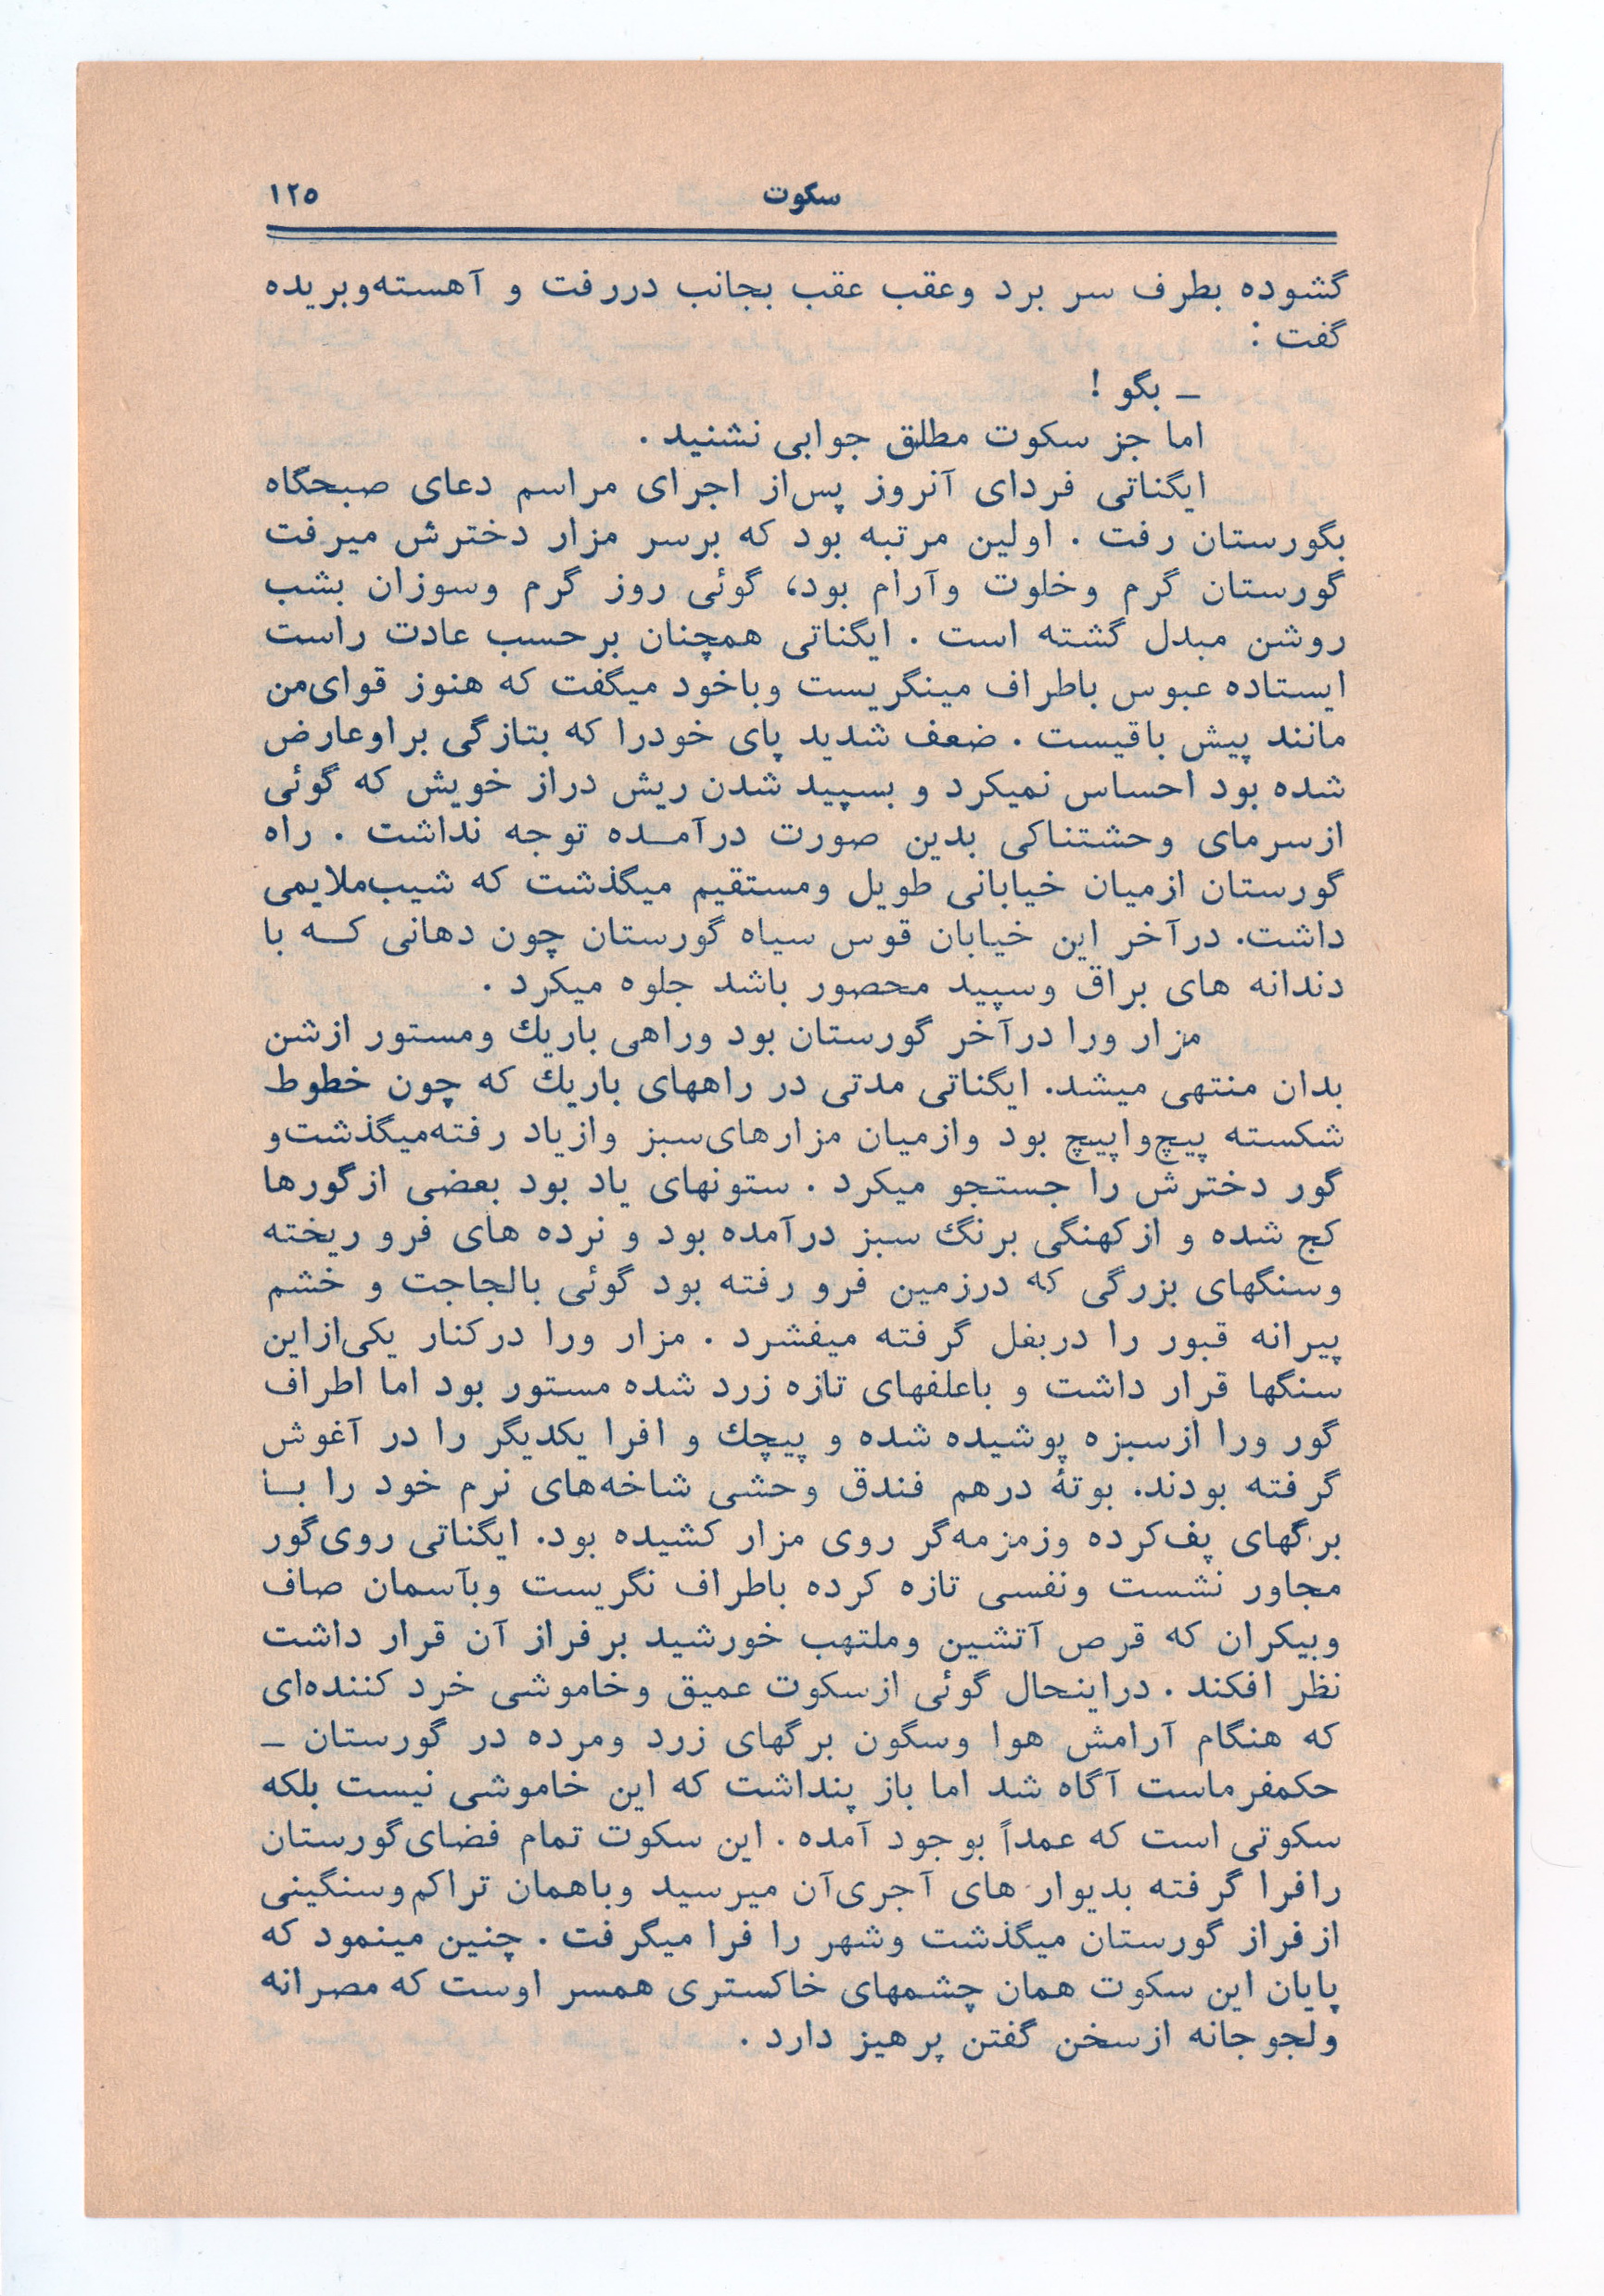 سکوت ۱۲۵
گشوده بطرف سر برد وعقب عقب بجانب دررفت و آهسته‌وبریده
گفت :
ـ بگو !
اما جز سکوت مطلق جوابی نشنید .
ایگناتی فردای آنروز پس‌از اجرای مراسم دعای صبحگاه
بگورستان رفت . اولین مرتبه بود که برسر مزار دخترش میرفت
گورستان گرم وخلوت وآرام بود، گوئی روز گرم وسوزان بشب
روشن مبدل گشته است . ایگناتی همچنان برحسب عادت راست
ایستاده عبوس باطراف مینگریست وباخود میگفت که هنوز قوای‌من
مانند پیش باقیست . ضعف شدید پای خودرا که بتازگی براوعارض
شده بود احساس نمیکرد و بسپید شدن ریش دراز خویش که گوئی
ازسرمای وحشتناکی بدین صورت درآمـده توجه نداشت . راه
گورستان ازمیان خیابانی طویل ومستقیم میگذشت که شیب‌ملایمی
داشت. درآخر این خیابان قوس سیاه گورستان چون دهانی کـه با
دندانه های براق وسپید محصور باشد جلوه میکرد .
مزار ورا درآخر گورستان بود وراهی باریك ومستور ازشن
بدان منتهی میشد. ایگناتی مدتی در راههای باریك که چون خطوط
شکسته پیچ‌واپیچ بود وازمیان مزارهای‌سبز وازیاد رفته‌میگذشت‌و
گور دخترش را جستجو میکرد . ستونهای یاد بود بعضی ازگورها
کج شده و ازکهنگی برنگ سبز درآمده بود و نرده های فرو ریخته
وسنگهای بزرگی که درزمین فرو رفته بود گوئی بالجاجت و خشم
پیرانه قبور را دربغل گرفته میفشرد . مزار ورا درکنار یکی‌ازاین
سنگها قرار داشت و باعلفهای تازه زرد شده مستور بود اما اطراف
گور ورا ازسبزه پوشیده شده و پیچك و افرا یکدیگر را در آغوش
گرفته بودند. بوتهٔ درهم فندق وحشی شاخه‌های نرم خود را بـا
برگهای پف‌کرده وزمزمه‌گر روی مزار کشیده بود. ایگناتی روی‌گور
مجاور نشست ونفسی تازه کرده باطراف نگریست وبآسمان صاف
وبیکران که قرص آتشین وملتهب خورشید برفراز آن قرار داشت
نظر افکند . دراینحال گوئی ازسکوت عمیق وخاموشی خرد کننده‌ای
که هنگام آرامش هوا وسگون برگهای زرد ومرده در گورستان ـ
حکمفرماست آگاه شد اما باز پنداشت که این خاموشی نیست بلکه
سکوتی است که عمداً بوجود آمده . این سکوت تمام فضای‌گورستان
رافرا گرفته بدیوار های آجری‌آن میرسید وباهمان تراکم‌وسنگینی
ازفراز گورستان میگذشت وشهر را فرا میگرفت . چنین مینمود که
پایان این سکوت همان چشمهای خاکستری همسر اوست که مصرانه
ولجوجانه ازسخن گفتن پرهیز دارد .